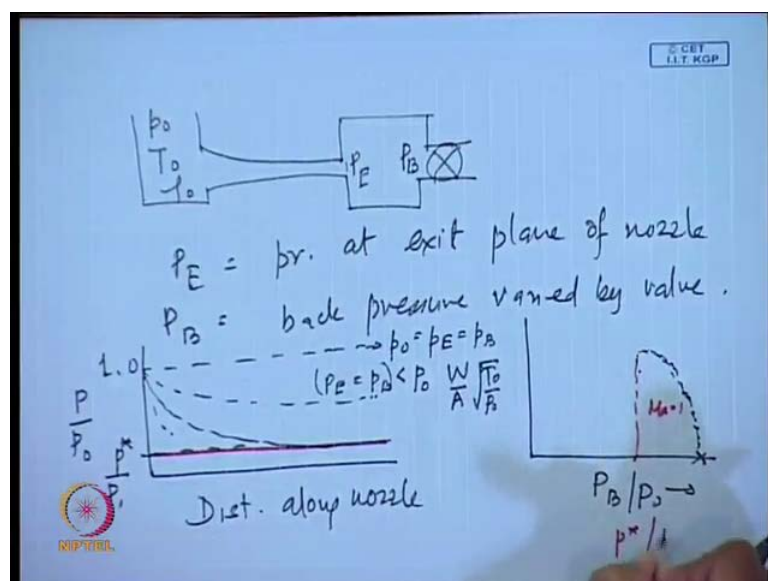 © CET
I.I.T. KGP
p0
T0
ρ0
PE
PB
PE = pr. at exit plane of nozzle
PB = back pressure varied by value.
1.0
p0 = pE = pB
(PE = PB) < P0
W/A √T0/p0
P/P0
p*/P0
Ma=1
Dist. along nozzle
PB/P0 →
p*/
NPTEL